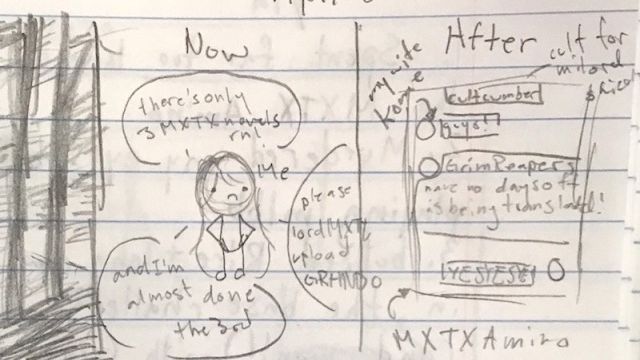 Now
there's only
3 MXTX novels
rn!
Me
and I'm
almost done
the 3rd
please
lord MXTX
upload
GRHNDO
After
my wife
cult for
milord
cultcumber
guys!
GrimReapers
have no days off
is being translated!
YESYESYES
MXTX Amino